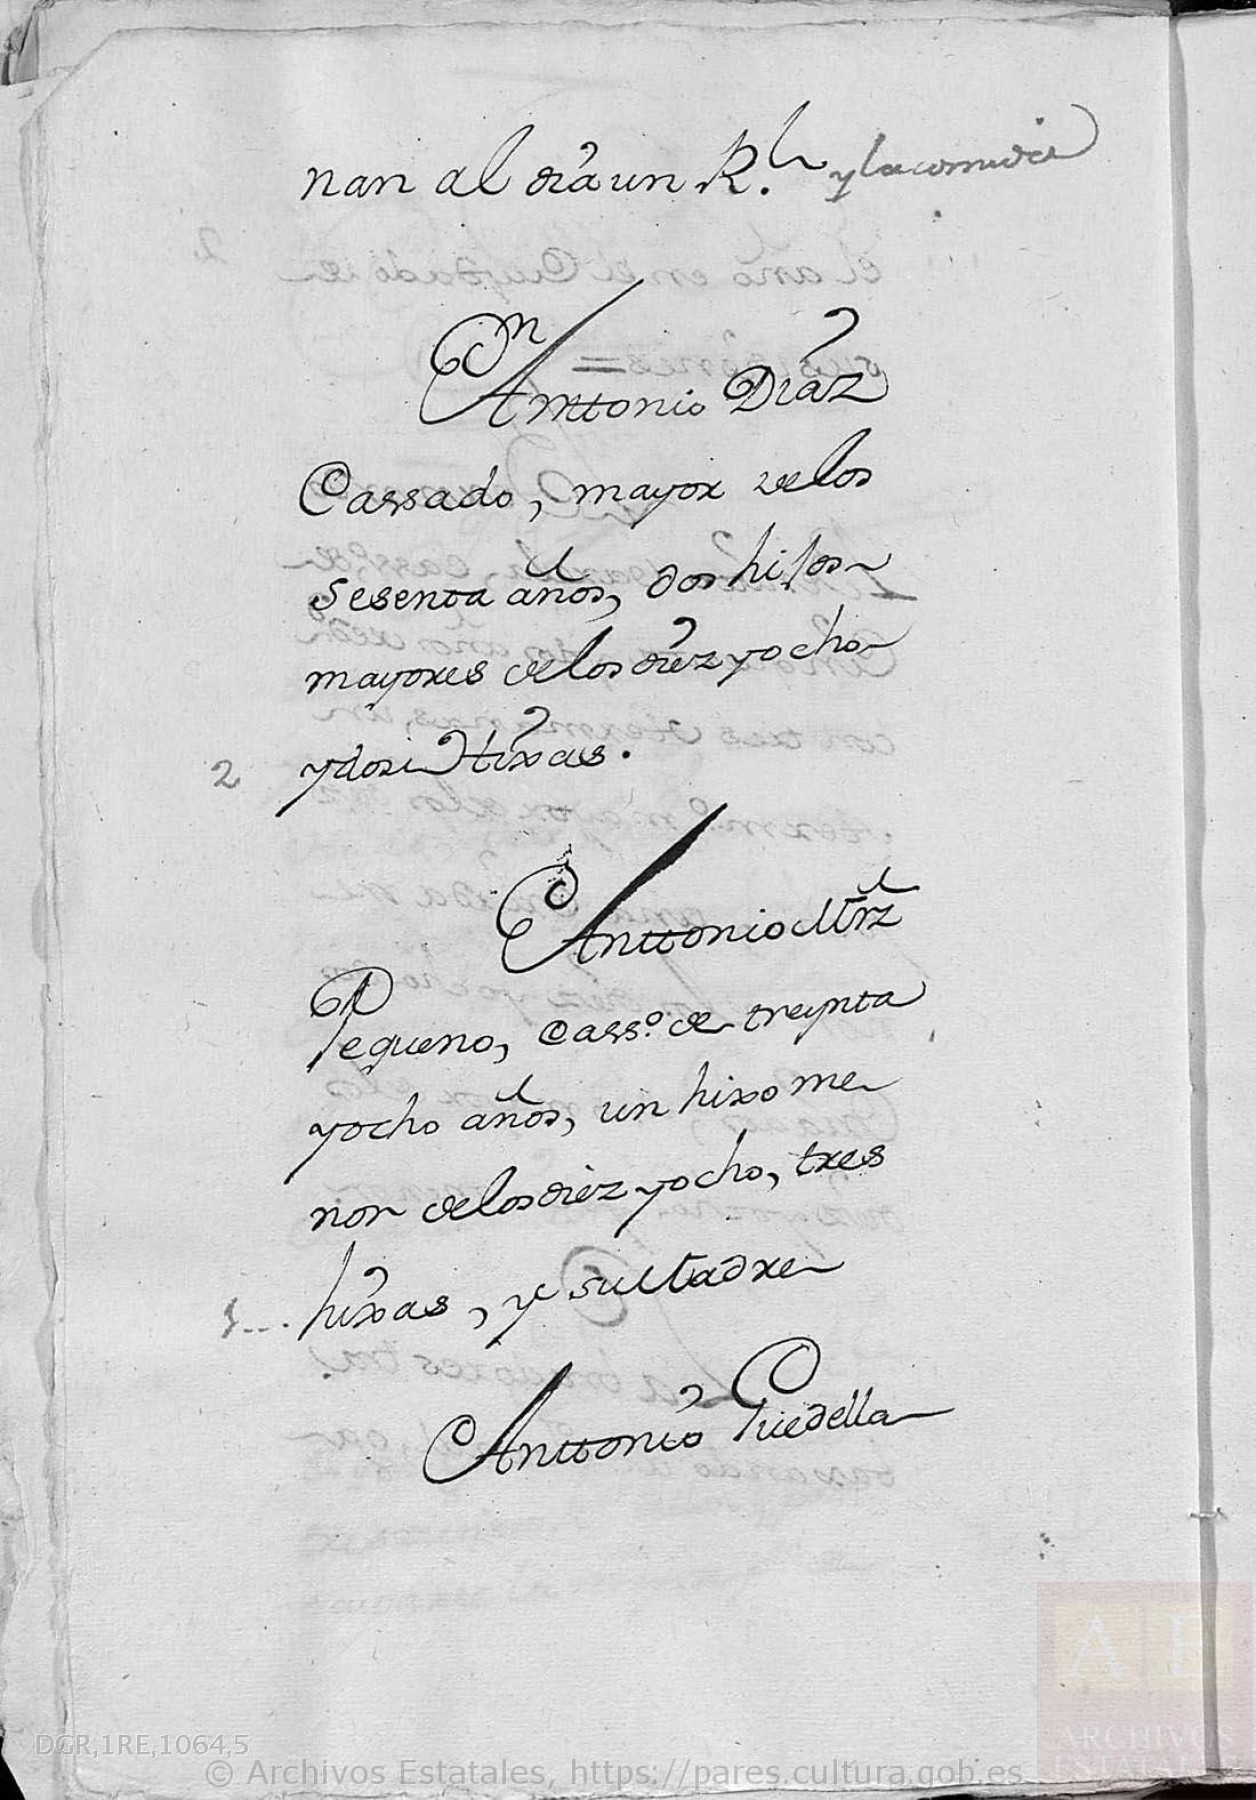 nan al dia un R.l y la comida
Anttonio Diaz
Cassado, mayor de los
sesenta años, dos hijos
mayores de los diez y ocho
2 y dos Hixas.
Anttonio Mrz
Pequeno, Casso. de treynta
y ocho años, un hixo me
nor de los diez y ocho, tres
hixas, y su Madre
Anttonio Piedella
DGR,1RE,1064,5
© Archivos Estatales, https://pares.cultura.gob.es
AE
ARCHIVOS
ESTATALES